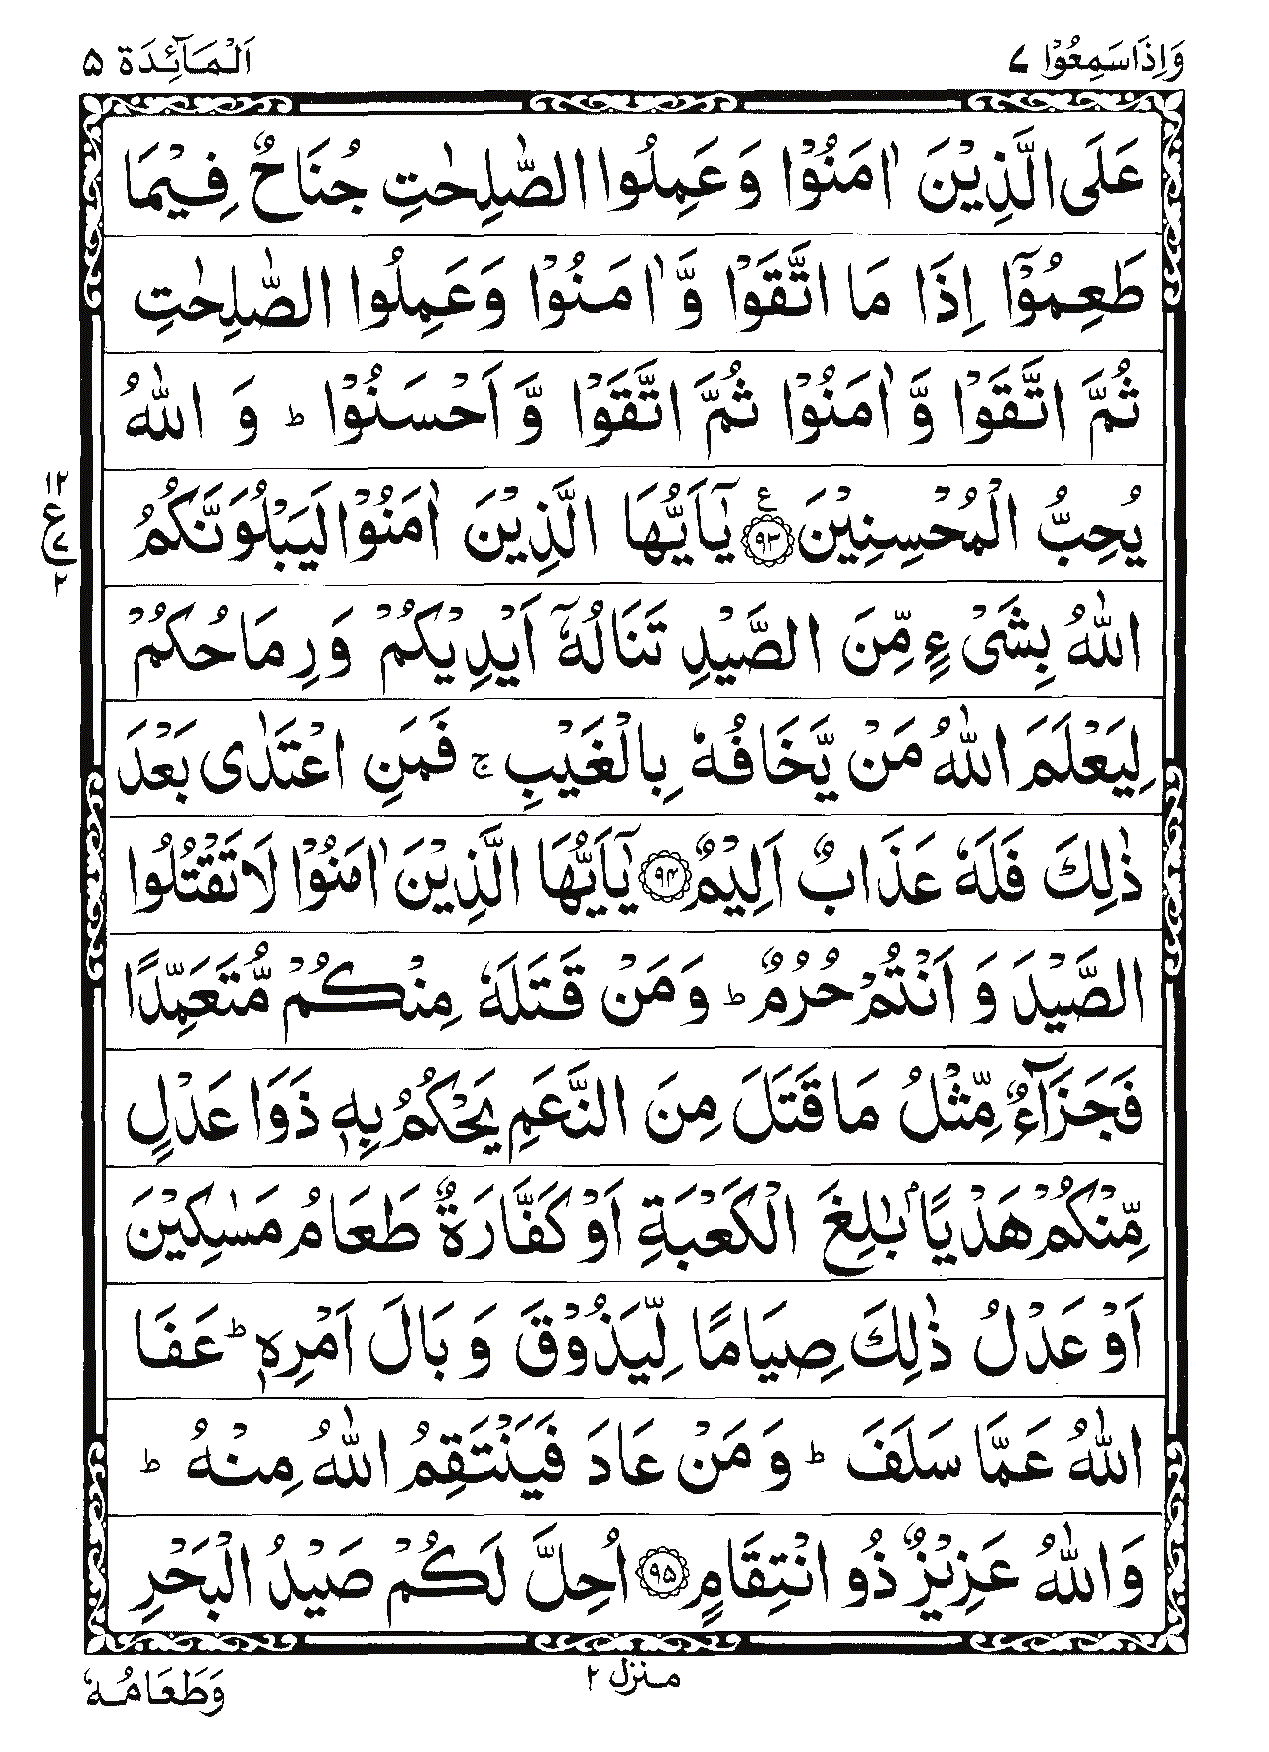 وَاِذَاسَمِعُوْا ٧
اَلْمَآئِدَة ۵
عَلَى الَّذِيْنَ اٰمَنُوْا وَ عَمِلُوا الصّٰلِحٰتِ جُنَاحٌ فِيْمَا
طَعِمُوْٓا اِذَا مَا اتَّقَوْا وَّ اٰمَنُوْا وَعَمِلُوا الصّٰلِحٰتِ
ثُمَّ اتَّقَوْا وَّ اٰمَنُوْا ثُمَّ اتَّقَوْا وَّ اَحْسَنُوْا ؕ وَ اللّٰهُ
يُحِبُّ الْمُحْسِنِيْنَ ﴿۹۳﴾ ع يٰۤاَيُّهَا الَّذِيْنَ اٰمَنُوْا لَيَبْلُوَنَّكُمُ
١٢
ع
٧
٢
اللّٰهُ بِشَىْءٍ مِّنَ الصَّيْدِ تَنَالُهٗۤ اَيْدِيْكُمْ وَ رِمَاحُكُمْ
لِيَعْلَمَ اللّٰهُ مَنْ يَّخَافُهٗ بِالْغَيْبِ ۚ فَمَنِ اعْتَدٰى بَعْدَ
ذٰلِكَ فَلَهٗ عَذَابٌ اَلِيْمٌ ﴿۹۴﴾ يٰۤاَيُّهَا الَّذِيْنَ اٰمَنُوْا لَا تَقْتُلُوا
الصَّيْدَ وَ اَنْتُمْ حُرُمٌ ؕ وَ مَنْ قَتَلَهٗ مِنْكُمْ مُّتَعَمِّدًا
فَجَزَآءٌ مِّثْلُ مَا قَتَلَ مِنَ النَّعَمِ يَحْكُمُ بِهٖ ذَوَا عَدْلٍ
مِّنْكُمْ هَدْيًاۢ بٰلِغَ الْكَعْبَةِ اَوْ كَفَّارَةٌ طَعَامُ مَسٰكِيْنَ
اَوْ عَدْلُ ذٰلِكَ صِيَامًا لِّيَذُوْقَ وَ بَالَ اَمْرِهٖ ؕ عَفَا
اللّٰهُ عَمَّا سَلَفَ ؕ وَ مَنْ عَادَ فَيَنْتَقِمُ اللّٰهُ مِنْهُ ؕ
وَاللّٰهُ عَزِيْزٌ ذُو انْتِقَامٍ ﴿۹۵﴾ اُحِلَّ لَكُمْ صَيْدُ الْبَحْرِ
منزل ٢
وَطَعَامُهٗ